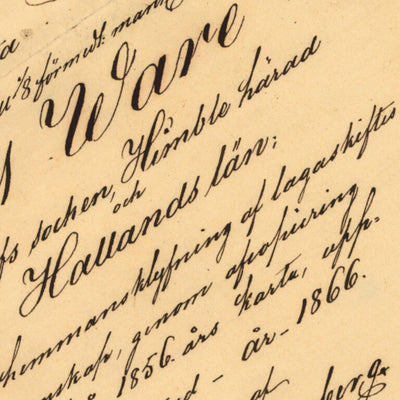 u 1/8 förmedt: mant
Ware
fs socken, Himble härad
och
Hallands län;
hemmansklyfning af lagaskiftes
nskap, genom afcopiering
1856 års karta, upp-
år - 1866.
af
berg